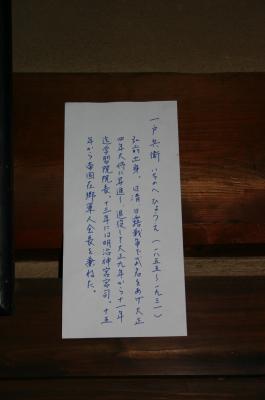 一戸兵衛 いちのへ ひょうえ (一八五五~一九三一)
弘前出身。日清、日露戦争で武名をあげ大正
四年大将に昇進し、退役して大正九年から十一年
迄学習院院長、十三年には明治神宮宮司、十五
年から帝国在郷軍人会長を兼ねた。